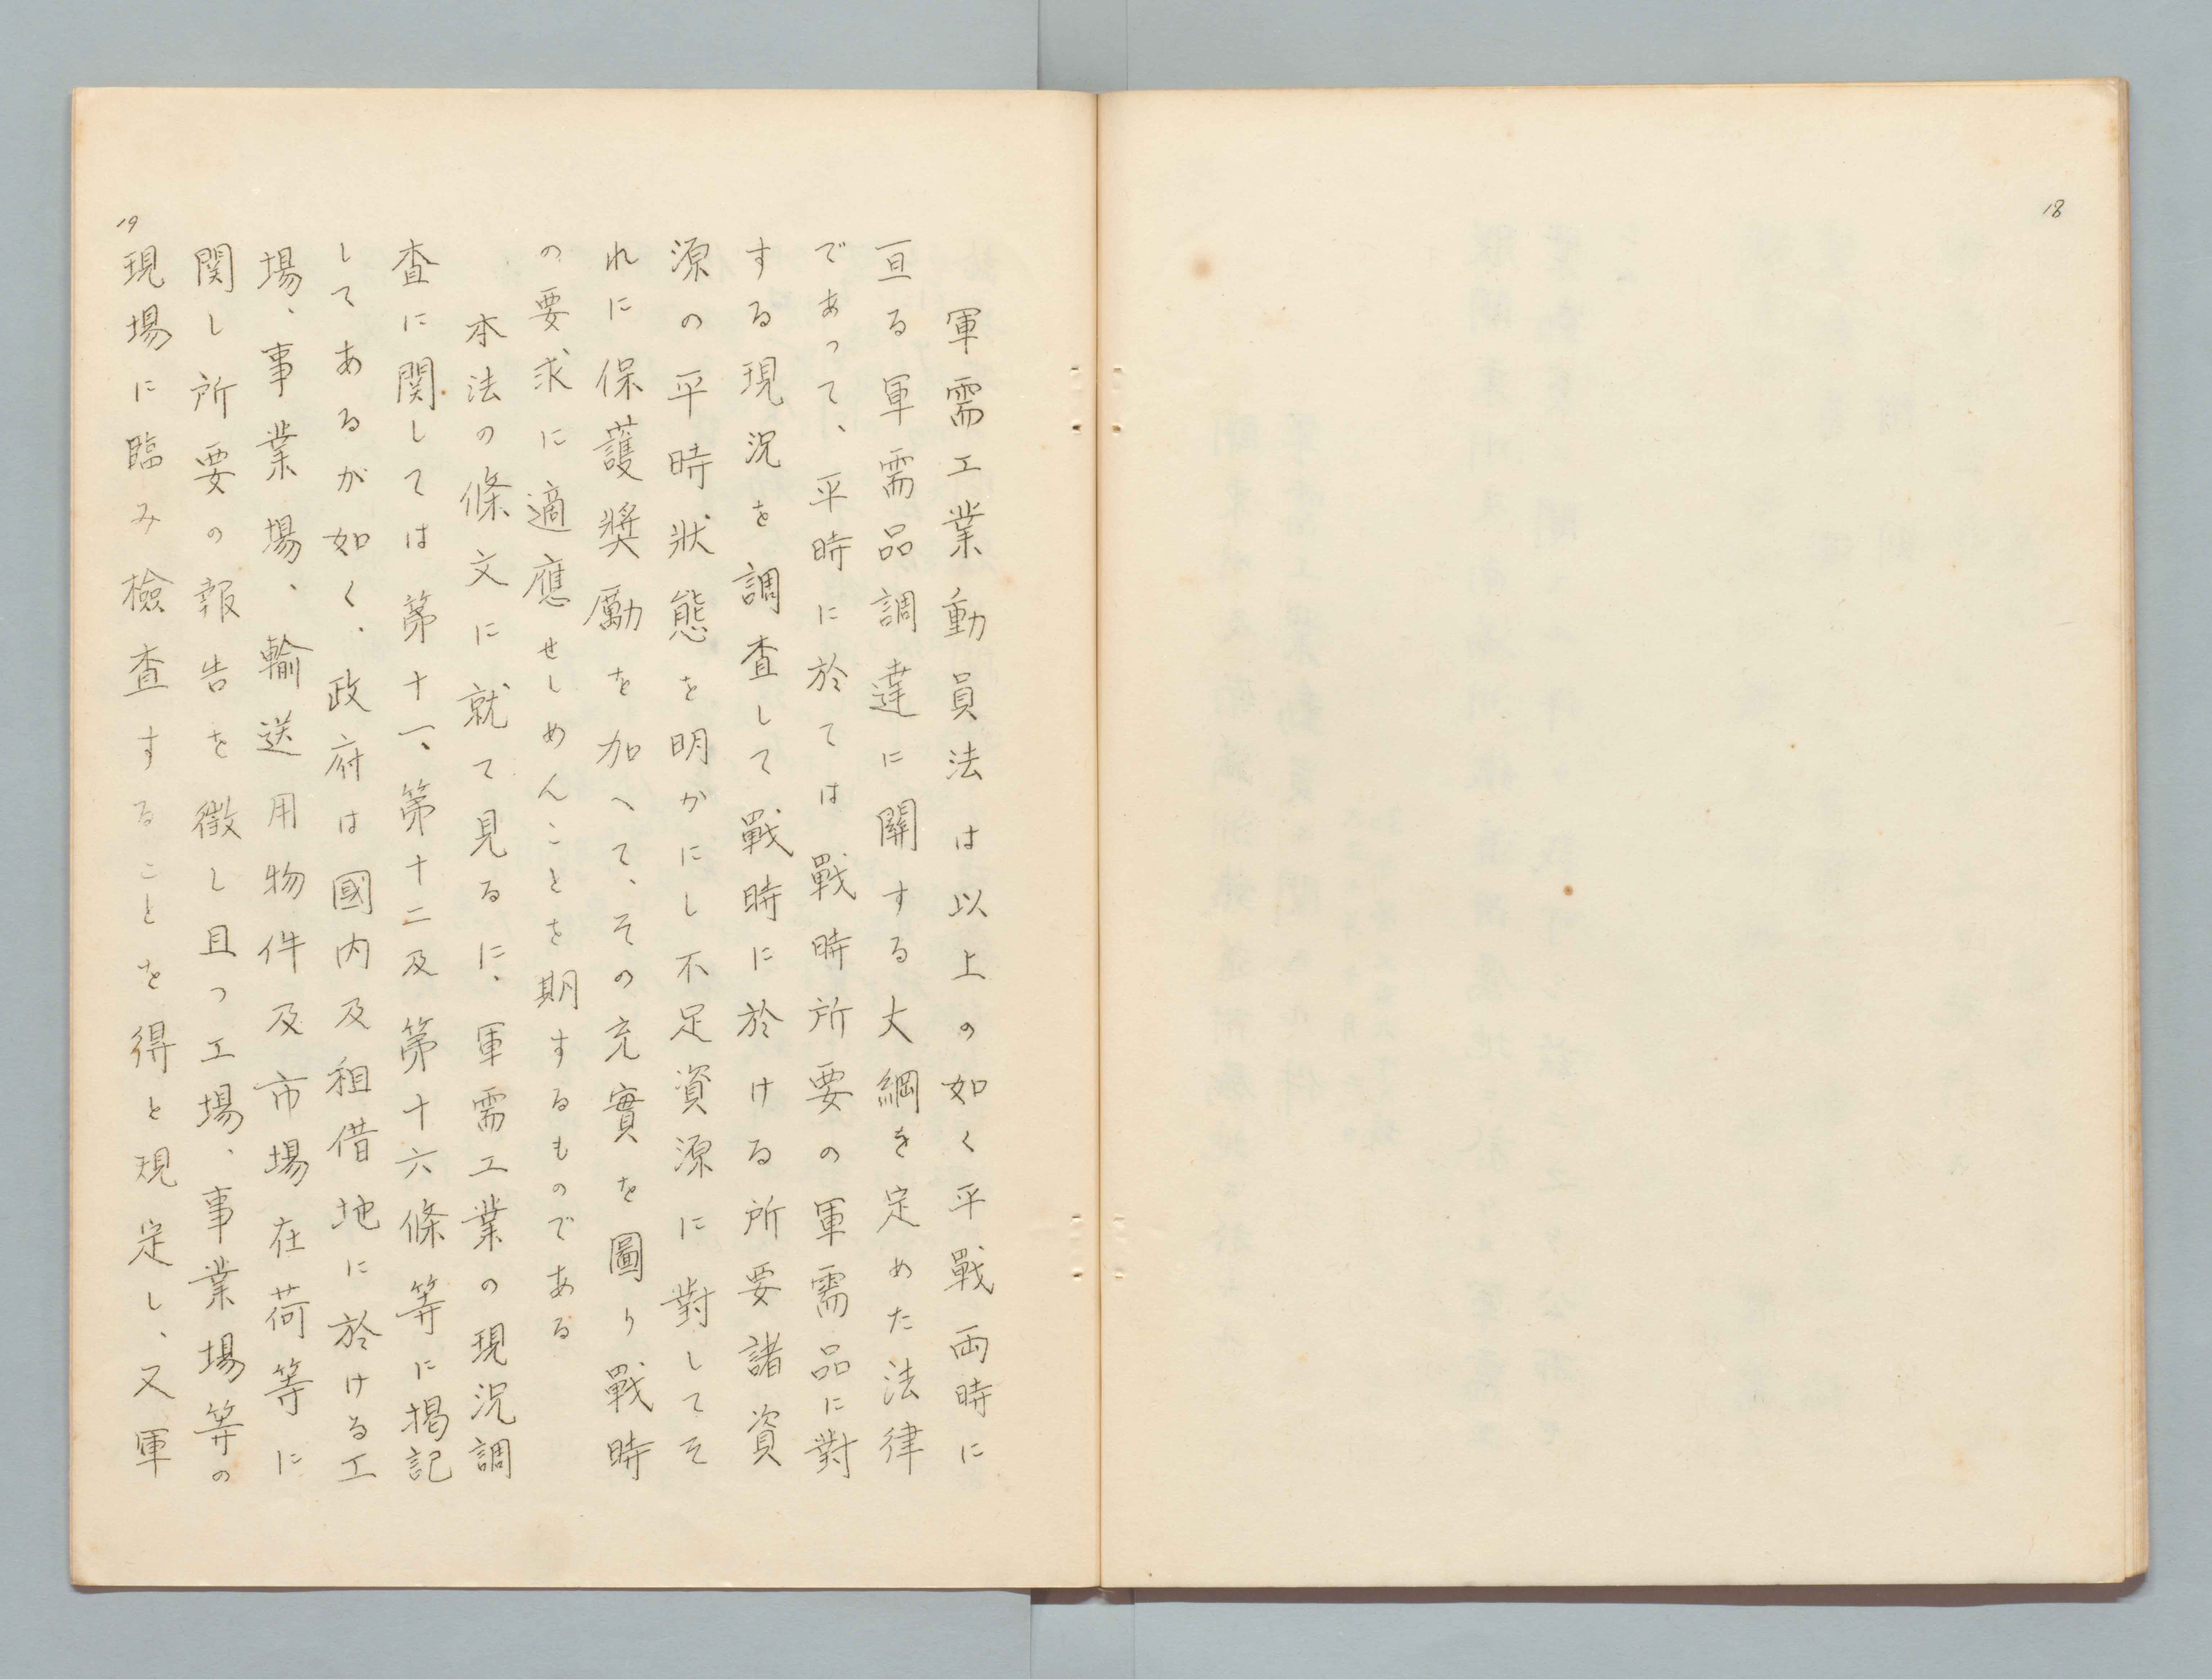 18
軍需工業動員法は以上の如く平戰両時に
亘る軍需品調達に關する大綱を定めた法律
であって、平時に於ては戰時所要の軍需品に對
する現況を調査して戰時に於ける所要諸資
源の平時狀態を明かにし不足資源に對してそ
れに保護奨勵を加へて、その充實を圖り戰時
の要求に適應せしめんことを期するものである
本法の條文に就て見るに、軍需工業の現況調
査に関しては第十一、第十二及第十六條等に掲記
してあるが如く、政府は國内及租借地に於ける工
場、事業場、輸送用物件及市場在荷等に
関し所要の報告を徴し且つ工場、事業場等の
現場に臨み檢査することを得と規定し、又軍
19